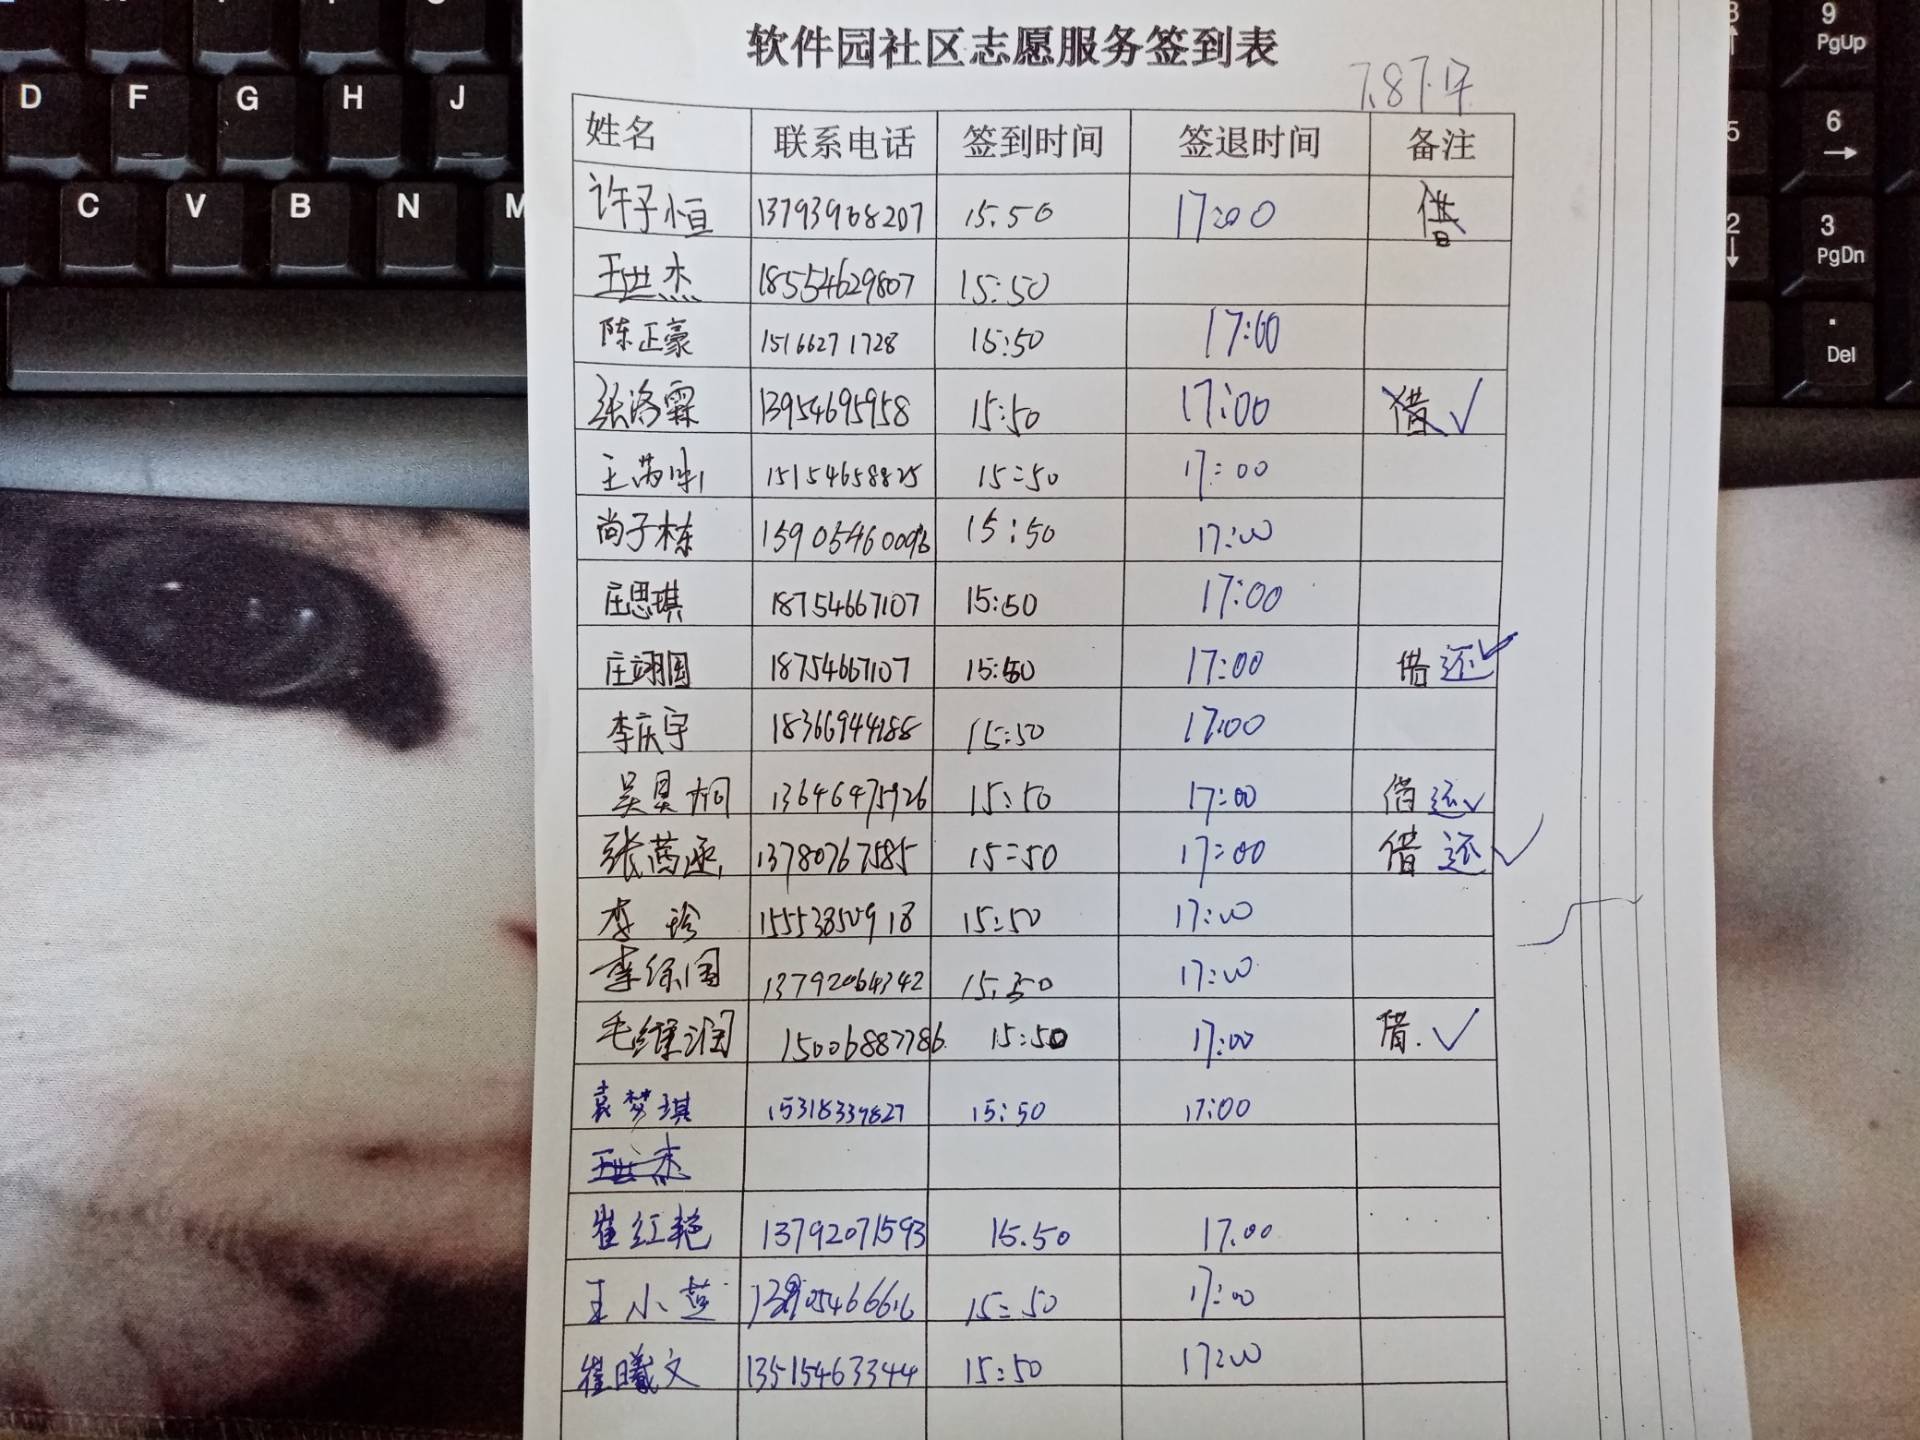 软件园社区志愿服务签到表
姓名 联系电话 签到时间 签退时间 备注
许子恒 13793968207 15:50 17:00 借
王世杰 18554629807 15:50
陈正豪 15166271728 15:50 17:00
张洛霖 13954695958 15:50 17:00 借√
王芮 15154658825 15:50 17:00
尚子栋 15905460096 15:50 17:00
庄思琪 18754667107 15:50 17:00
庄翊国 18754667107 15:50 17:00 借 还√
李庆宇 18366944188 15:50 17:00
吴昊桐 13646475926 15:50 17:00 借 还√
张茜函 13780767585 15:50 17:00 借 还√
李珍 15553850918 15:50 17:00
李 国 13792064342 15:50 17:00
毛维润 15006887786 15:50 17:00 借.√
袁梦琪 15318339827 15:50 17:00
王世杰
崔红艳 13792071593 15.50 17.00
王小莲 15:50 17:00
崔曦文 13515463344 15:50 17:00
D F G H J
C V B N M
9
PgUp
5
6
2
3
PgDn
.
Del